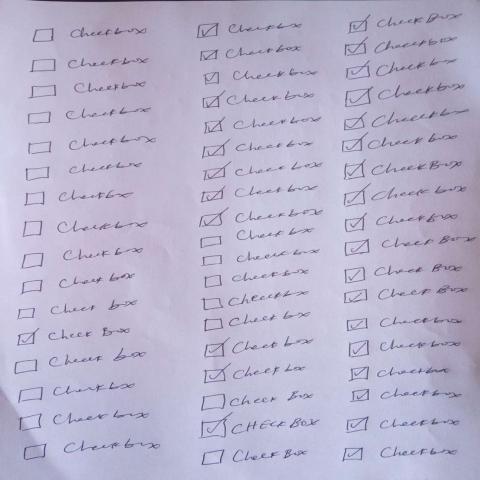 ☐ Checkbox
☐ Checkbox
☐ Checkbox
☐ Checkbox
☐ Checkbox
☐ Checkbox
☐ Checkbox
☐ Checkbox
☐ Check box
☐ Check box
☐ Check box
☑ Check Box
☐ Check box
☐ Checkbox
☐ Checkbox
☐ Checkbox
☑ Checkbox
☑ Checkbox
☑ Checkbox
☑ Checkbox
☑ Checkbox
☑ Check box
☑ Check box
☑ Check box
☑ Checkbox
☐ Check box
☐ Check box
☐ Check box
☐ Checkbox
☐ Check box
☑ Check box
☑ Check box
☐ Check Box
☑ CHECKBOX
☐ Check Box
☑ Check Box
☑ Checkbox
☑ Checkbox
☑ Checkbox
☑ Checkbox
☑ Checkbox
☑ CheckBox
☑ Check box
☑ CheckBox
☑ Check Box
☑ Check Box
☑ Check Box
☑ Checkbox
☑ Checkbox
☑ Checkbox
☑ Checkbox
☑ Checkbox
☑ Checkbox